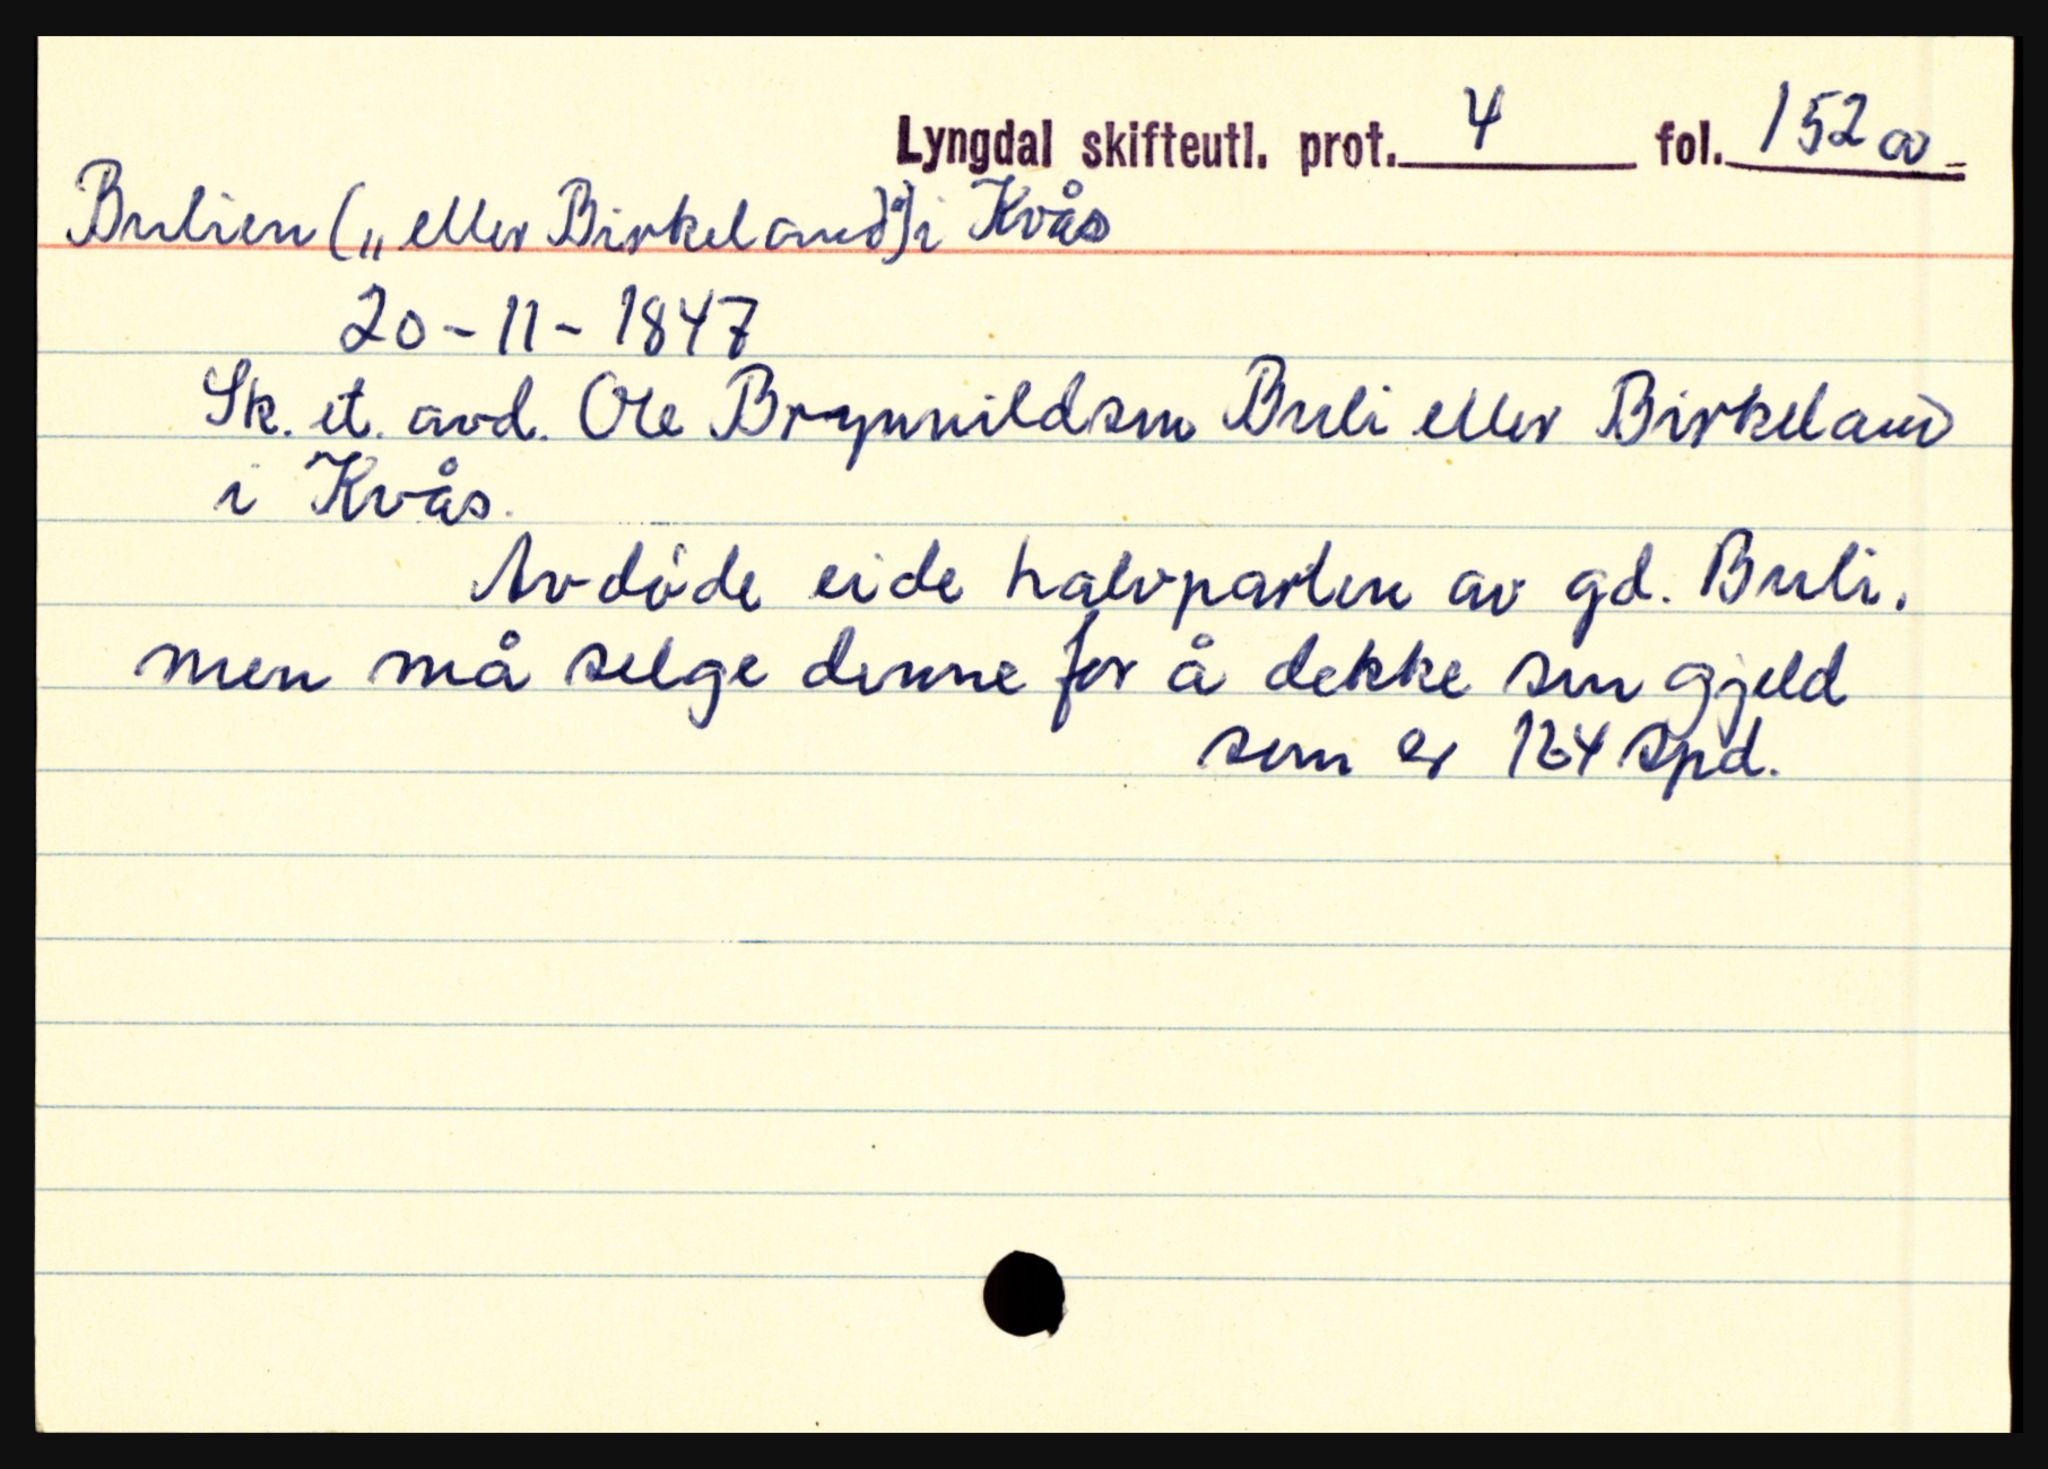 Lyngdal skifteutl. prot. 4 fol. 152a
Bulien („eller Birkeland") i Kvås
20-11-1847
Sk. et. avd. Ole Brynnildsen Buli eller Birkeland
i Kvås.
Avdøde eide halvparten av gd. Buli.
men må selge denne for å dekke sin gjeld
som er 124 spd.